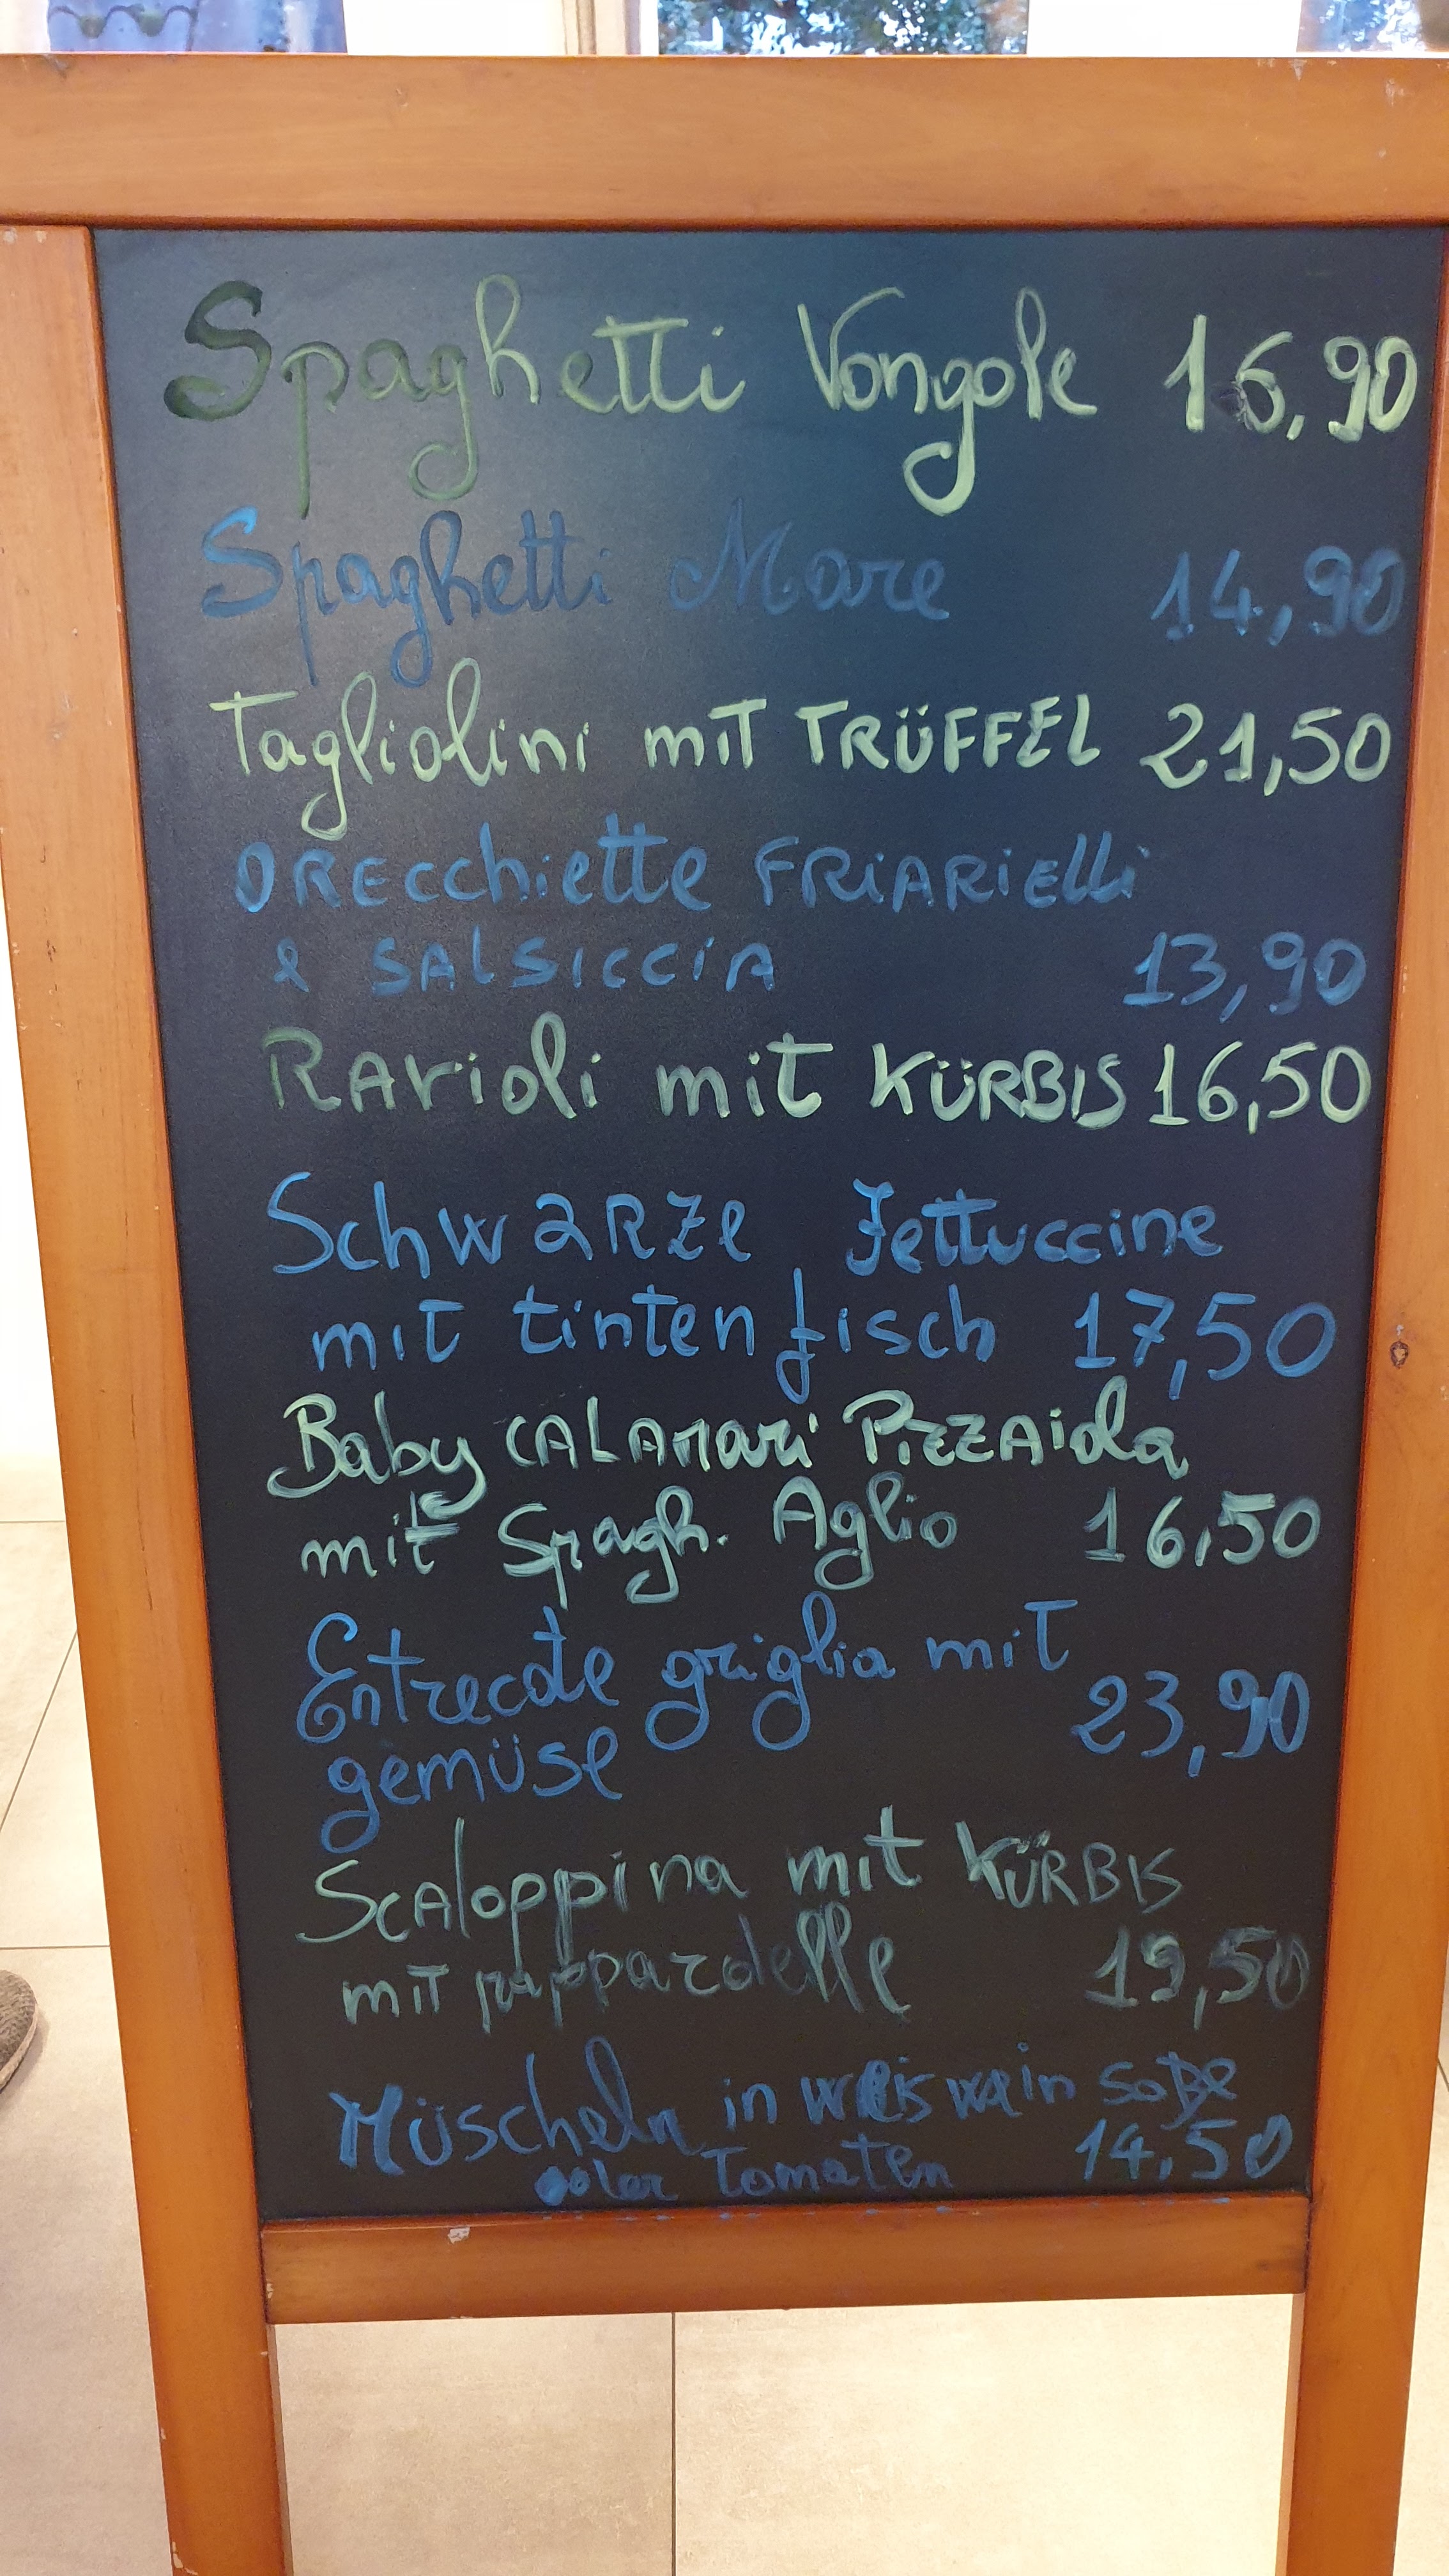 Spaghetti Vongole 16,90
Spaghetti Mare 14,90
Tagliolini mit TRÜFFEL 21,50
ORECchiette FRIARIElli
& SALSICCIA 13,90
RAvioli mit KÜRBIS 16,50
SchwARZe Fettuccine
mit tintenfisch 17,50
Baby CALAMari PizzAiola
mit Spagh. Aglio 16,50
Entrecote griglia mit
gemüse 23,90
Scaloppina mit KÜRBIS
mit pappardelle 19,50
Müscheln in weiswein soße
oder Tomaten 14,50